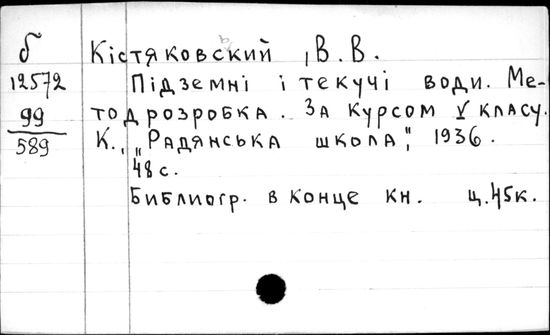 б Кістяковский, В. В.
12572 Підземні і текучі води. Ме-
99 тодрозробка. За курсом V класу.
589 К., „Радянська школа", 1936.
48 с.
Библиогр. в конце кн. ц. 45к.